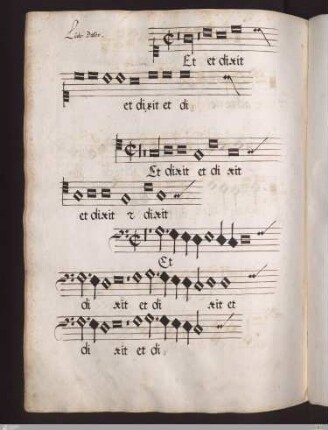 Et et dixit
et dixit et di
Et dixit et di xit
et dixit ꝛ dixit
Et
di xit et di xit et
di xit et di